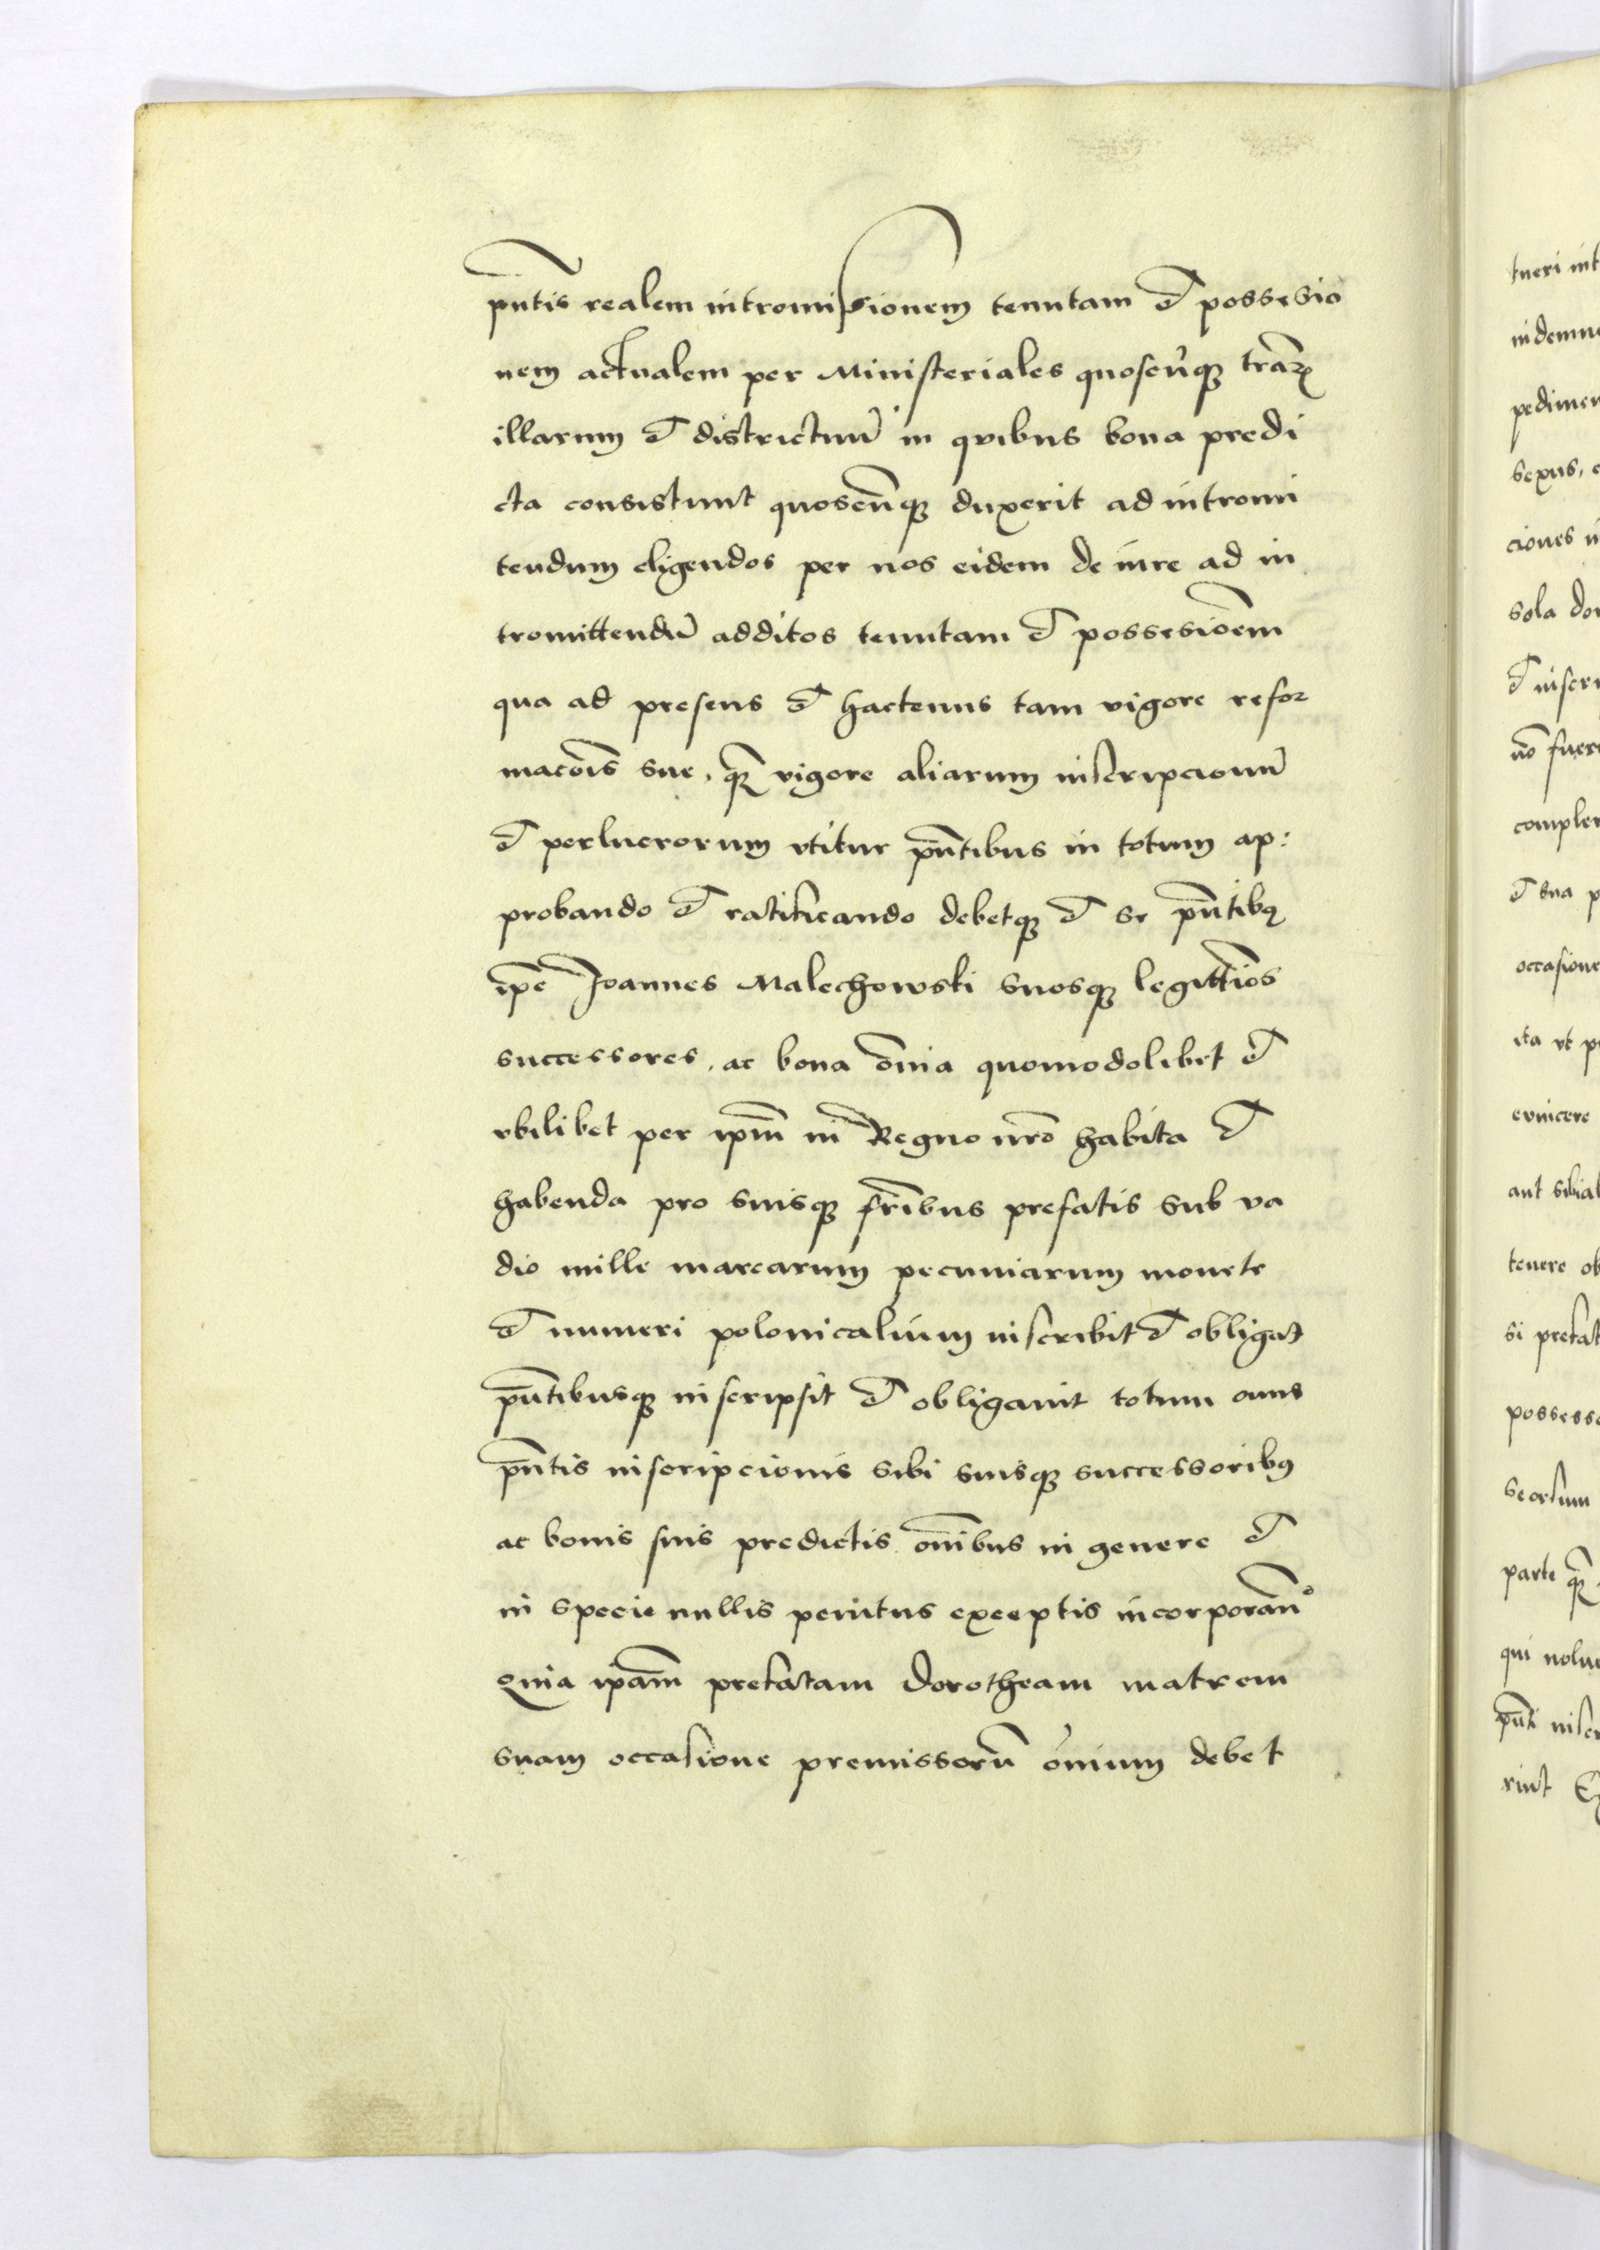 pn̄tis realem intromissionem tenutam et possessio
nem actualem per Ministeriales quoscūq₃ tr̄aꝝ
illarum et districtuū in quibus bona predi
cta consistunt quoscūq₃ duxerit ad intromi
tendum eligendos per nos eidem de iure ad in
tromittendū additos tenutam et possessiōem
qua ad presens et hactenus tam vigore refor
mac̄ois sue, q̄₃ vigore aliarum inscripcionū
et perlucrorum vtitur pn̄tibus in totum ap:
probando et ratificando debetq₃ et se pn̄tibꝫ
ip̄e Joannes Malechowski suosq₃ legittīos
successores, ac bona ōnia quomodolibet et
vbilibet per ip̄m in Regno nr̄o habita et
habenda pro suisq₃ fr̄ibus prefatis sub va
dio mille marcarum pecuniarum monete
et numeri polonicalium inscribit et obligat
pn̄tibusq₃ inscripsit et obligauit totum onus
pn̄tis inscripcionis sibi suisq₃ successoribꝫ
ac bonis suis predictis ōnibus in genere et
in specie nullis penitus exceptis incorporan̄º
Quia ip̄am prefatam Dorotheam matrem
suam occasione premissorū ōnium debet
tueri int
indemne
pedimen
sexus,
ciones
sola do
et inscri
nō fuer
comple
et sua p
occasione
ita vt p
euincere
aut
tenere ob
si prefat
possesso
seorsum
parte q̄₃
qui nolu
pn̄ti inscr
rint